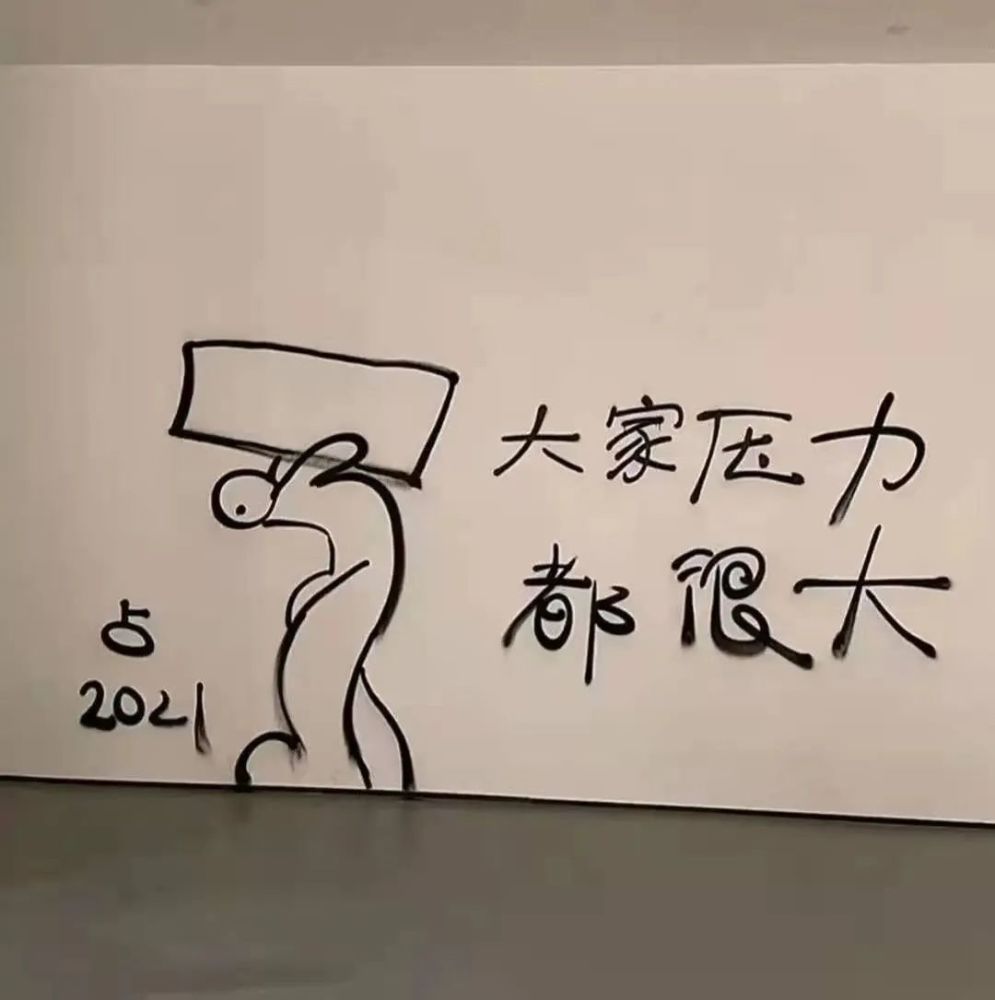 大家压力
都很大
占
2021